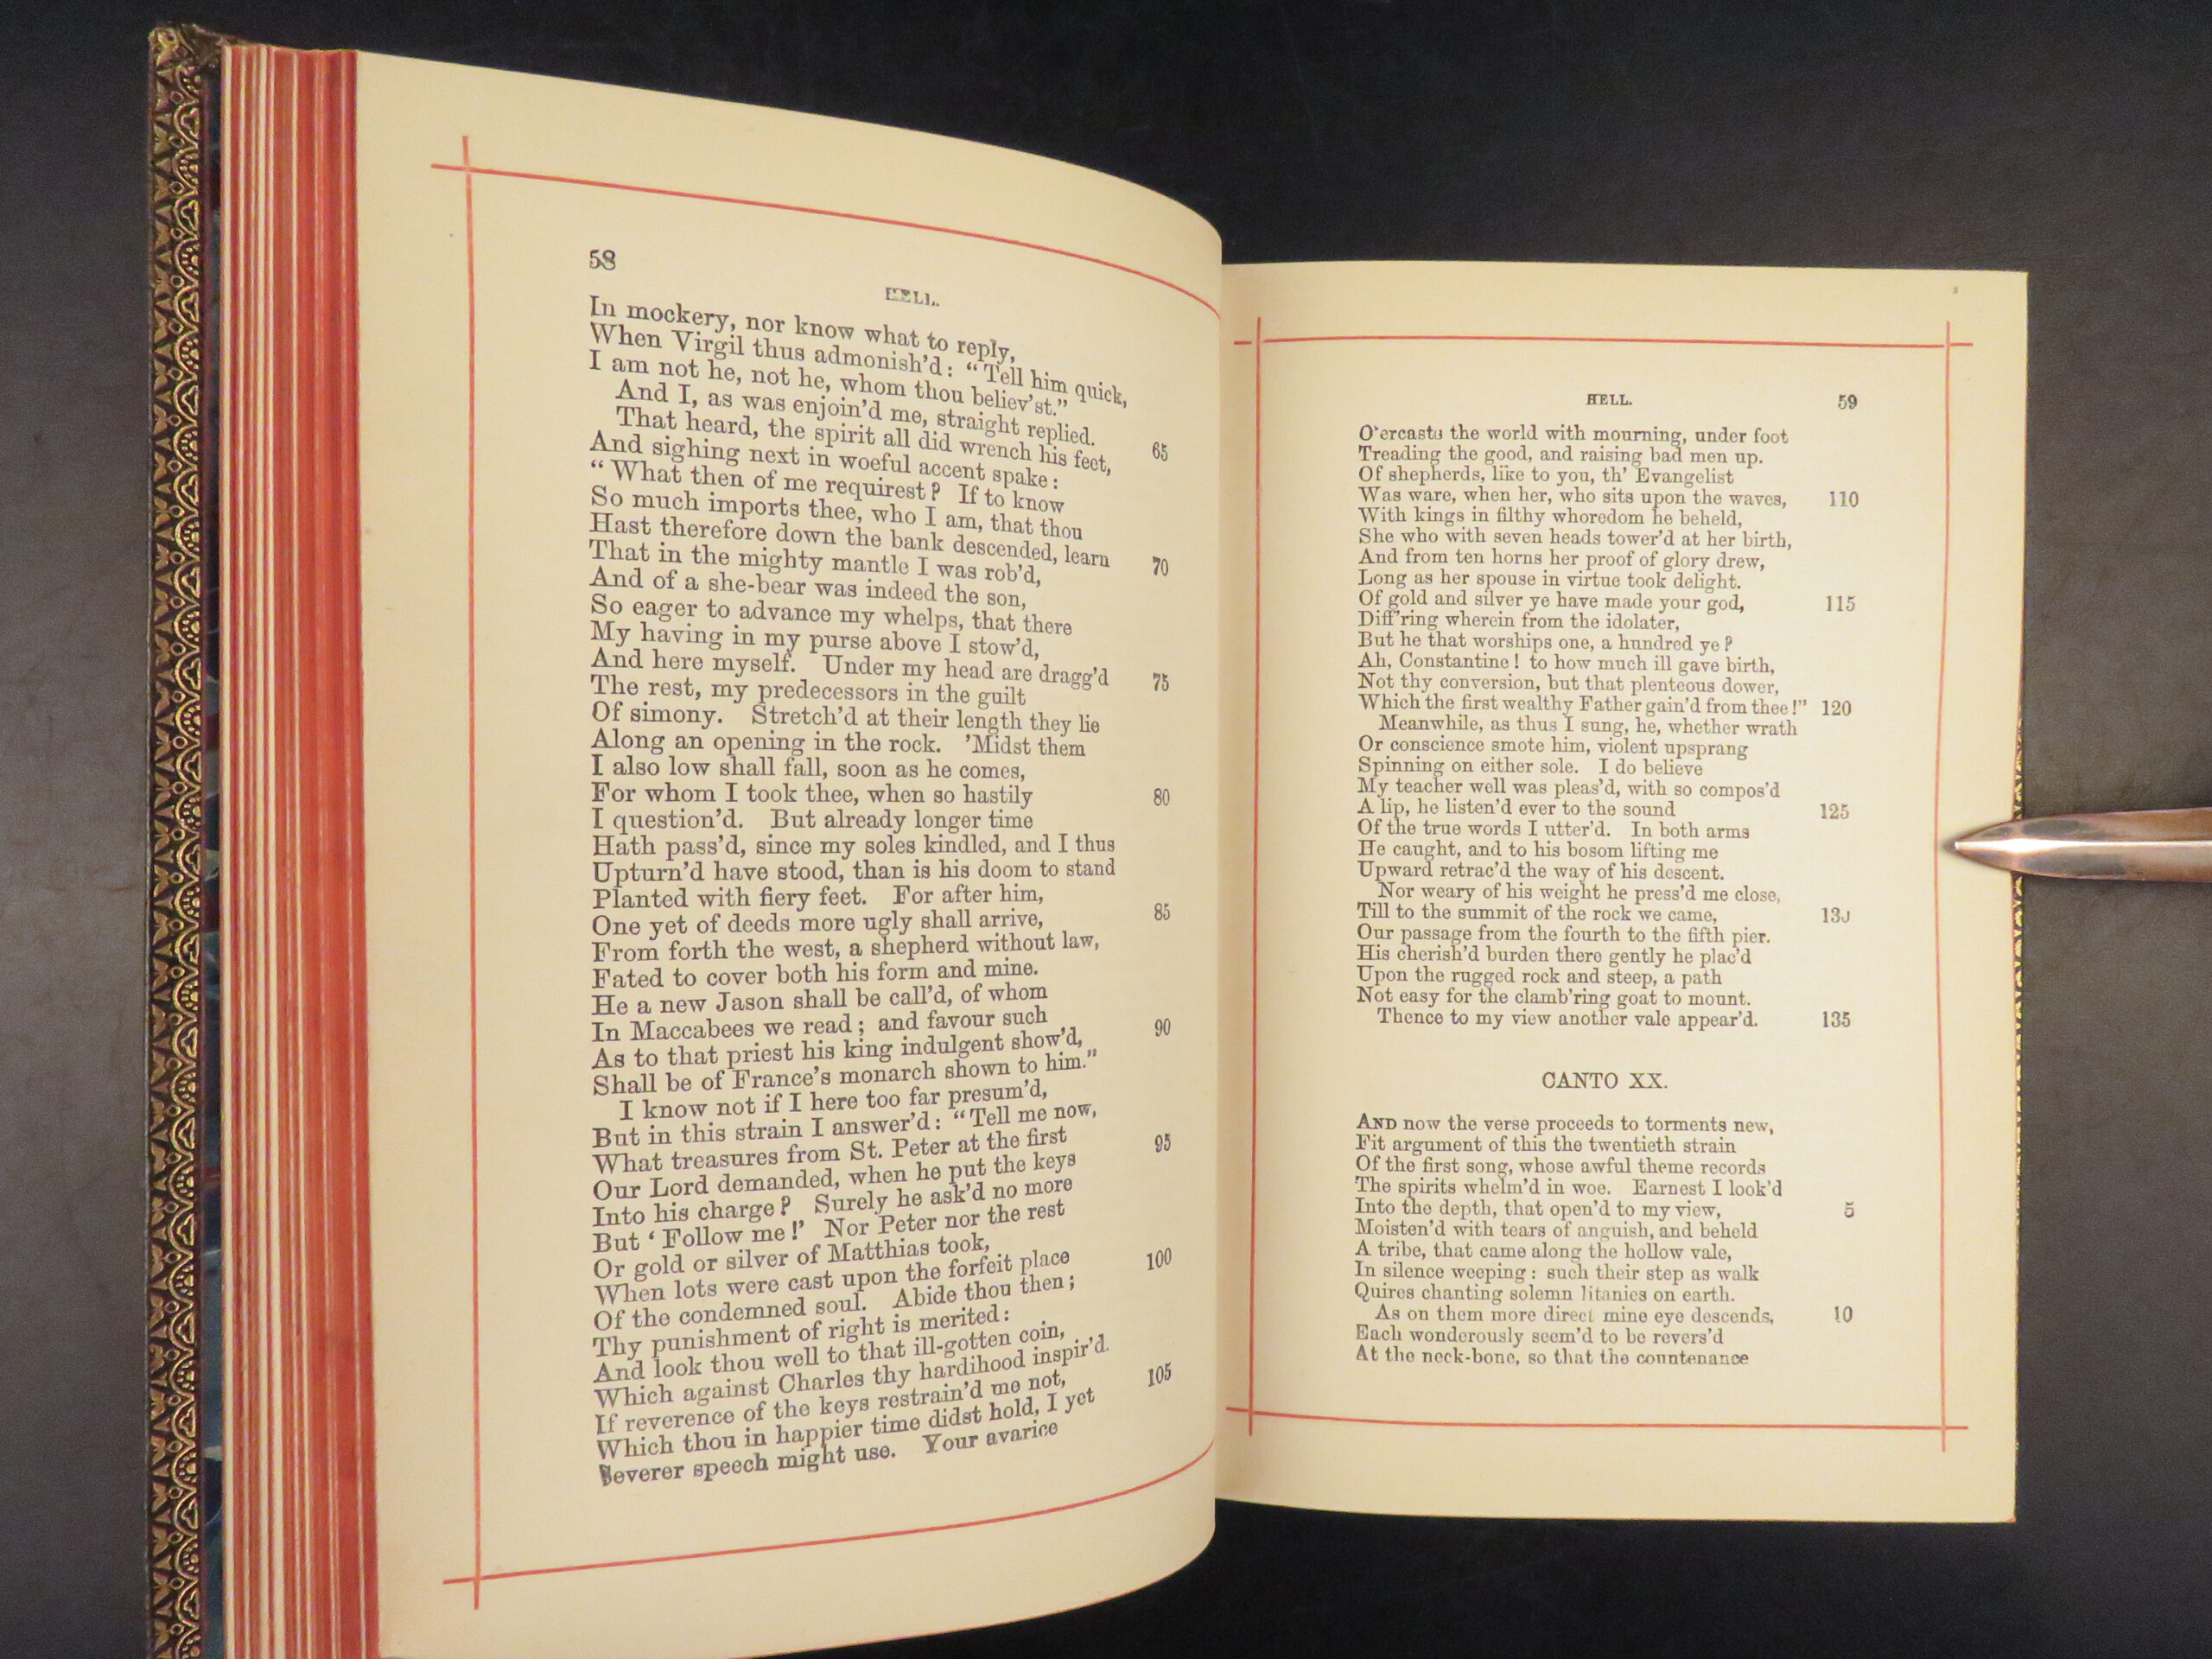 58
HELL.
In mockery, nor know what to reply,
When Virgil thus admonish'd: “Tell him quick,
I am not he, not he, whom thou believ'st.”
And I, as was enjoin'd me, straight replied.
That heard, the spirit all did wrench his feet, 65
And sighing next in woeful accent spake:
“What then of me requirest? If to know
So much imports thee, who I am, that thou
Hast therefore down the bank descended, learn
That in the mighty mantle I was rob'd, 70
And of a she-bear was indeed the son,
So eager to advance my whelps, that there
My having in my purse above I stow'd,
And here myself. Under my head are dragg'd
The rest, my predecessors in the guilt 75
Of simony. Stretch'd at their length they lie
Along an opening in the rock. 'Midst them
I also low shall fall, soon as he comes,
For whom I took thee, when so hastily 80
I question'd. But already longer time
Hath pass'd, since my soles kindled, and I thus
Upturn'd have stood, than is his doom to stand
Planted with fiery feet. For after him,
One yet of deeds more ugly shall arrive, 85
From forth the west, a shepherd without law,
Fated to cover both his form and mine.
He a new Jason shall be call'd, of whom
In Maccabees we read; and favour such
As to that priest his king indulgent show'd, 90
Shall be of France's monarch shown to him.”
I know not if I here too far presum'd,
But in this strain I answer'd: “Tell me now,
What treasures from St. Peter at the first
Our Lord demanded, when he put the keys 95
Into his charge? Surely he ask'd no more
But ‘Follow me!’ Nor Peter nor the rest
Or gold or silver of Matthias took,
When lots were cast upon the forfeit place
Of the condemned soul. Abide thou then; 100
Thy punishment of right is merited:
And look thou well to that ill-gotten coin,
Which against Charles thy hardihood inspir'd.
If reverence of the keys restrain'd me not,
Which thou in happier time didst hold, I yet 105
Severer speech might use. Your avarice
HELL. 59
O'ercasts the world with mourning, under foot
Treading the good, and raising bad men up.
Of shepherds, like to you, th' Evangelist
Was ware, when her, who sits upon the waves, 110
With kings in filthy whoredom he beheld,
She who with seven heads tower'd at her birth,
And from ten horns her proof of glory drew,
Long as her spouse in virtue took delight.
Of gold and silver ye have made your god, 115
Diff'ring wherein from the idolater,
But he that worships one, a hundred ye?
Ah, Constantine! to how much ill gave birth,
Not thy conversion, but that plenteous dower,
Which the first wealthy Father gain'd from thee!” 120
Meanwhile, as thus I sung, he, whether wrath
Or conscience smote him, violent upsprang
Spinning on either sole. I do believe
My teacher well was pleas'd, with so compos'd
A lip, he listen'd ever to the sound 125
Of the true words I utter'd. In both arms
He caught, and to his bosom lifting me
Upward retrac'd the way of his descent.
Nor weary of his weight he press'd me close,
Till to the summit of the rock we came, 130
Our passage from the fourth to the fifth pier.
His cherish'd burden there gently he plac'd
Upon the rugged rock and steep, a path
Not easy for the clamb'ring goat to mount.
Thence to my view another vale appear'd. 135
CANTO XX.
AND now the verse proceeds to torments new,
Fit argument of this the twentieth strain
Of the first song, whose awful theme records
The spirits whelm'd in woe. Earnest I look'd
Into the depth, that open'd to my view, 5
Moisten'd with tears of anguish, and beheld
A tribe, that came along the hollow vale,
In silence weeping: such their step as walk
Quires chanting solemn litanies on earth.
As on them more direct mine eye descends, 10
Each wonderously seem'd to be revers'd
At the neck-bone, so that the countenance